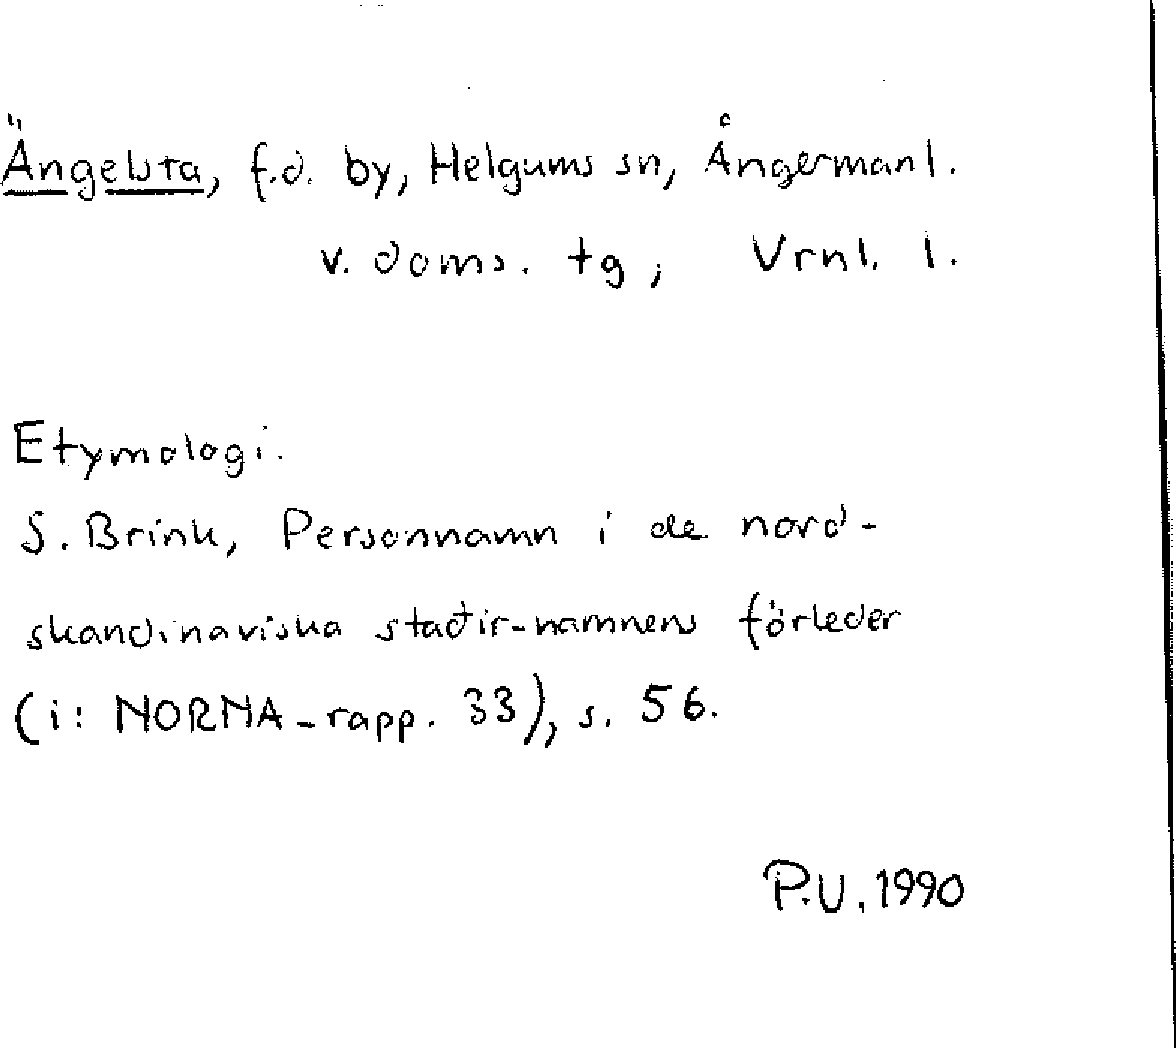 Ängelsta, f.d. by, Helgums sn, Ångermanl.
v. doms. tg; Vrnl. l.
Etymologi.
S. Brink, Personnamn i de nord-
skandinaviska staðir-namnens förleder
(i: NORNA-rapp. 33), s. 56.
P.U, 1990